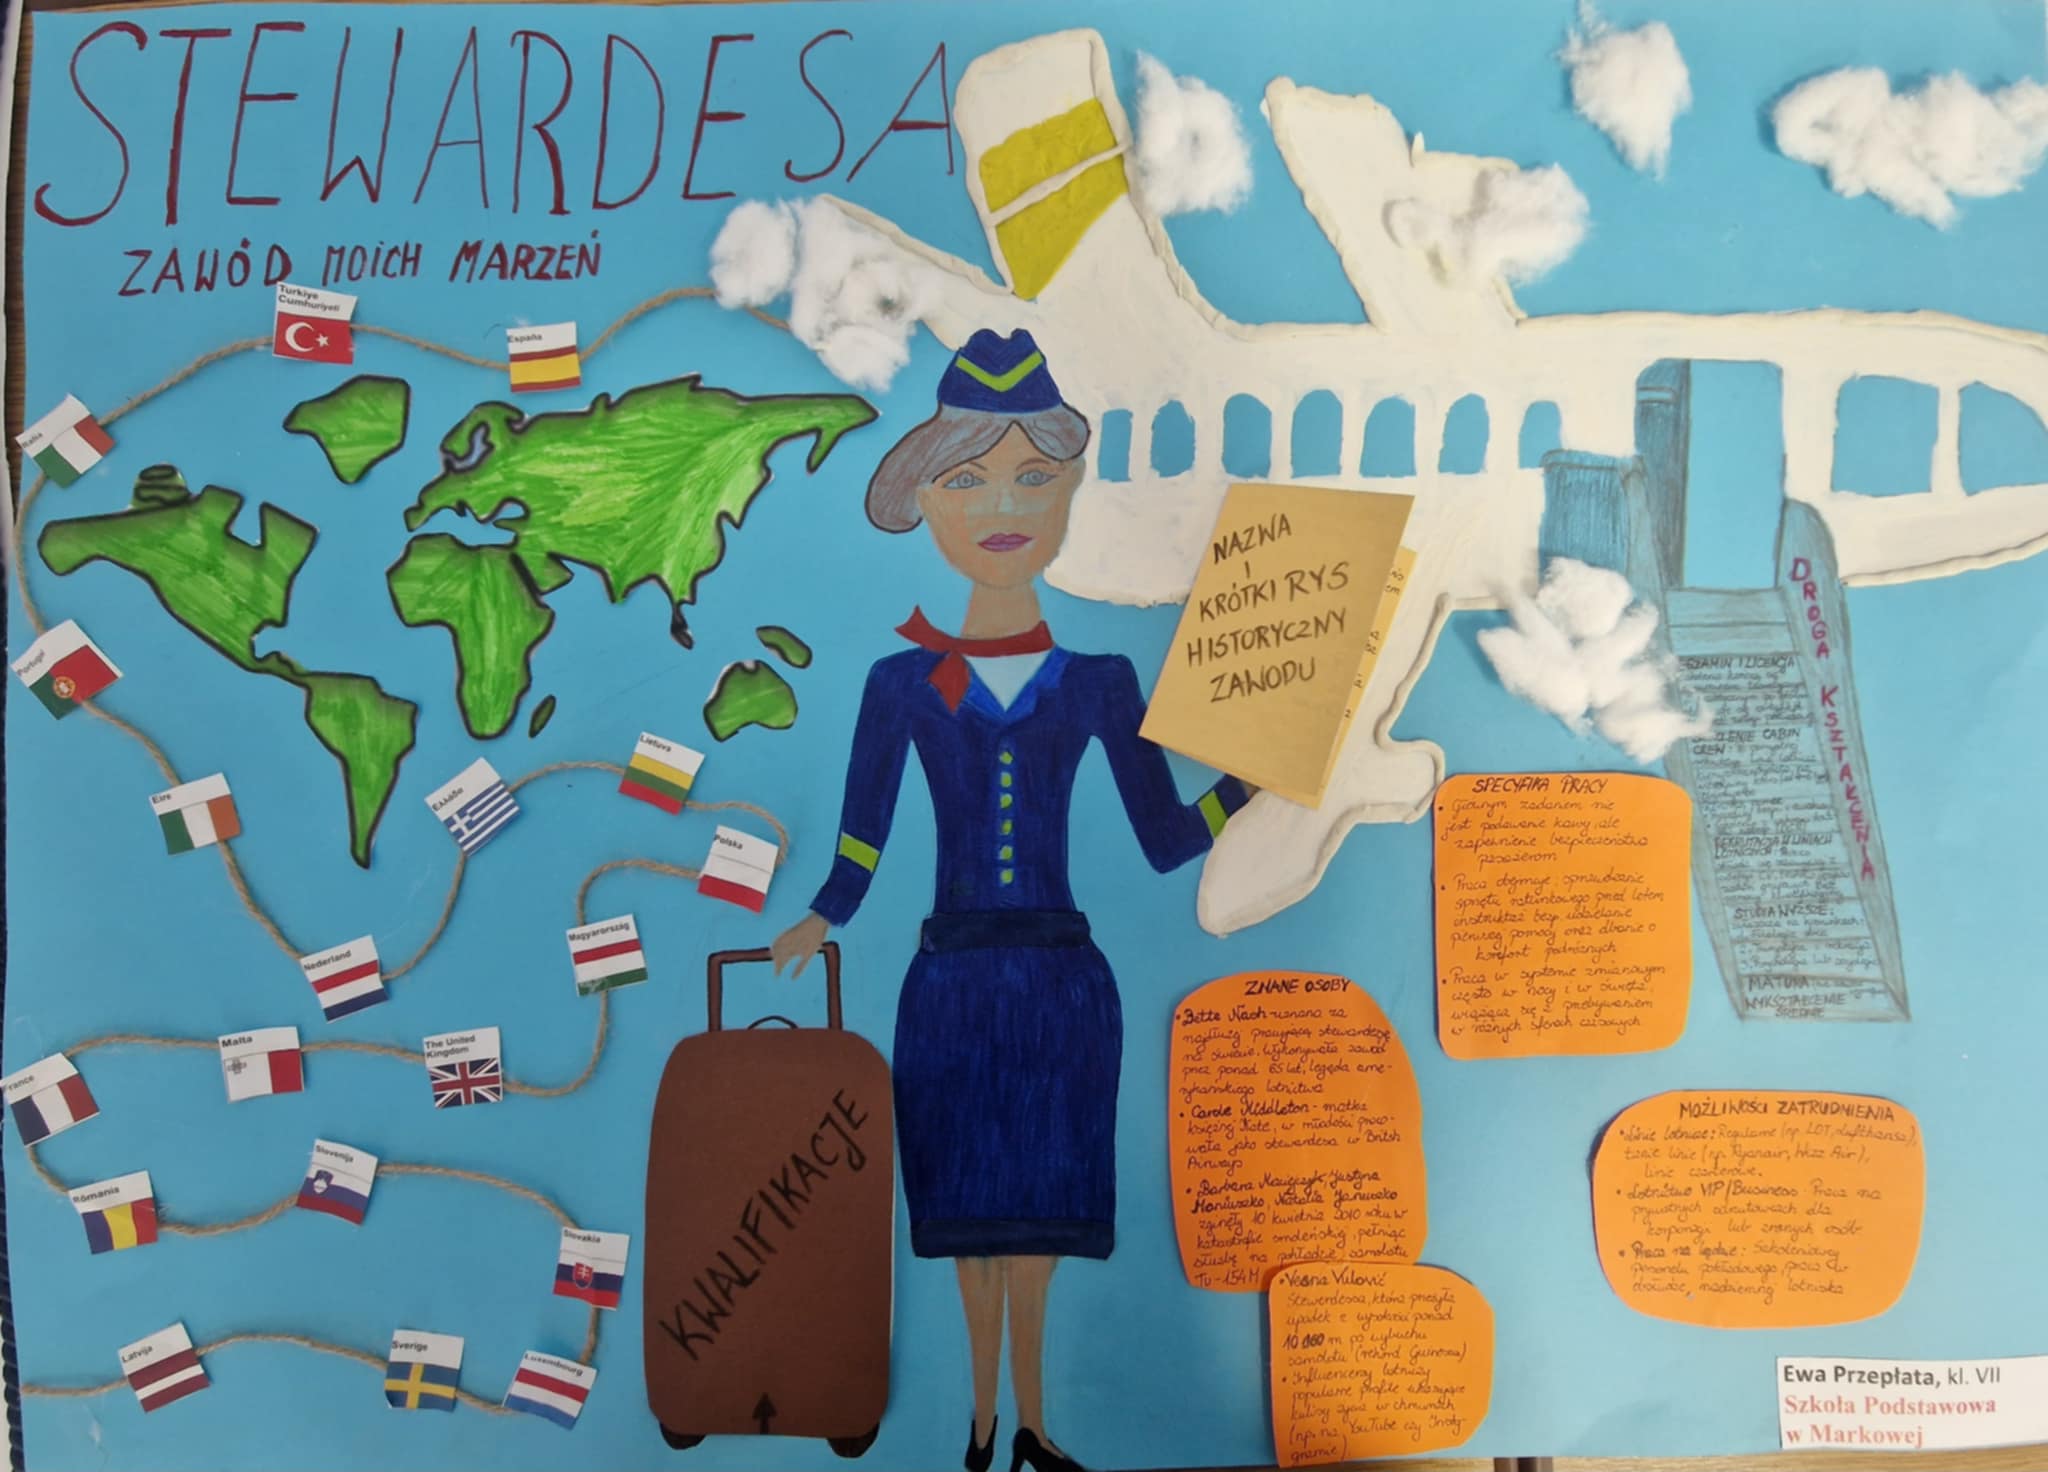 STEWARDESA
ZAWÓD MOICH MARZEŃ
Türkiye
Cumhuriyeti
España
Italia
Portugal
Eire
Ελλάδα
Lietuva
Polska
Nederland
Magyarország
Malta
The United
Kingdom
France
România
Slovenija
Slovakia
Latvija
Sverige
Luxembourg
KWALIFIKACJE
NAZWA
I
KRÓTKI RYS
HISTORYCZNY
ZAWODU
DROGA KSZTAŁCENIA
EGZAMIN I LICENCJA
CABIN
CREW:
STUDIA WYŻSZE:
MATURA:
WYKSZTAŁCENIE
ŚREDNIE
SPECYFIKA PRACY
• Głównym zadaniem nie
jest podawanie kawy, ale
zapewnienie bezpieczeństwa
pasażerom
• Praca obejmuje: sprawdzanie
sprzętu ratunkowego przed lotem
instruktaż bezp. udzielanie
pierwszej pomocy oraz dbanie o
komfort podróżnych
• Praca w systemie zmianowym
często w nocy i w święta,
wiążąca się z przebywaniem
w różnych sferach czasowych
ZNANE OSOBY
• Bette Nash - uznana za
najdłużej pracującą stewardesę
na świecie. Wykonywała zawód
przez ponad 65 lat, legenda ame-
rykańskiego lotnictwa
• Carole Middleton - matka
księżnej Kate, w młodości praco-
wała jako stewardesa w British
Airways
• Barbara Maciejczyk, Justyna
Moniuszko, Natalia Januszko
zginęły 10 kwietnia 2010 roku w
katastrofie smoleńskiej, pełniąc
służbę na pokładzie samolotu
Tu-154M
• Vesna Vulović
Stewardessa, która przeżyła
upadek z wysokości ponad
10 160 m po wybuchu
samolotu (rekord Guinessa)
• Influencerzy lotniczy
popularne profile ukazujące
kulisy życia w chmurach
(np. na YouTube czy Insta-
gramie)
MOŻLIWOŚCI ZATRUDNIENIA
• Linie lotnicze: Regularne (np. LOT, Lufthansa),
tanie linie (np. Ryanair, Wizz Air),
linie czarterowe.
• Lotnictwo VIP/Business - Praca na
prywatnych odrzutowcach dla
korporacji lub znanych osób
• Praca na lądzie: Szkoleniowcy
personelu pokładowego, praca w
obsłudze naziemnej lotniska
Ewa Przepłata, kl. VII
Szkoła Podstawowa
w Markowej